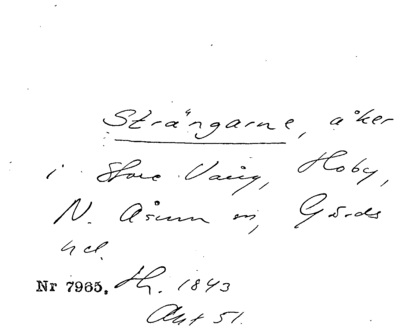 Strängarne, åker
i Store Vång, Hoby,
N. Åsum sn, Gärds
hd.
Nr 7965. Lh. 1843
Akt 51.